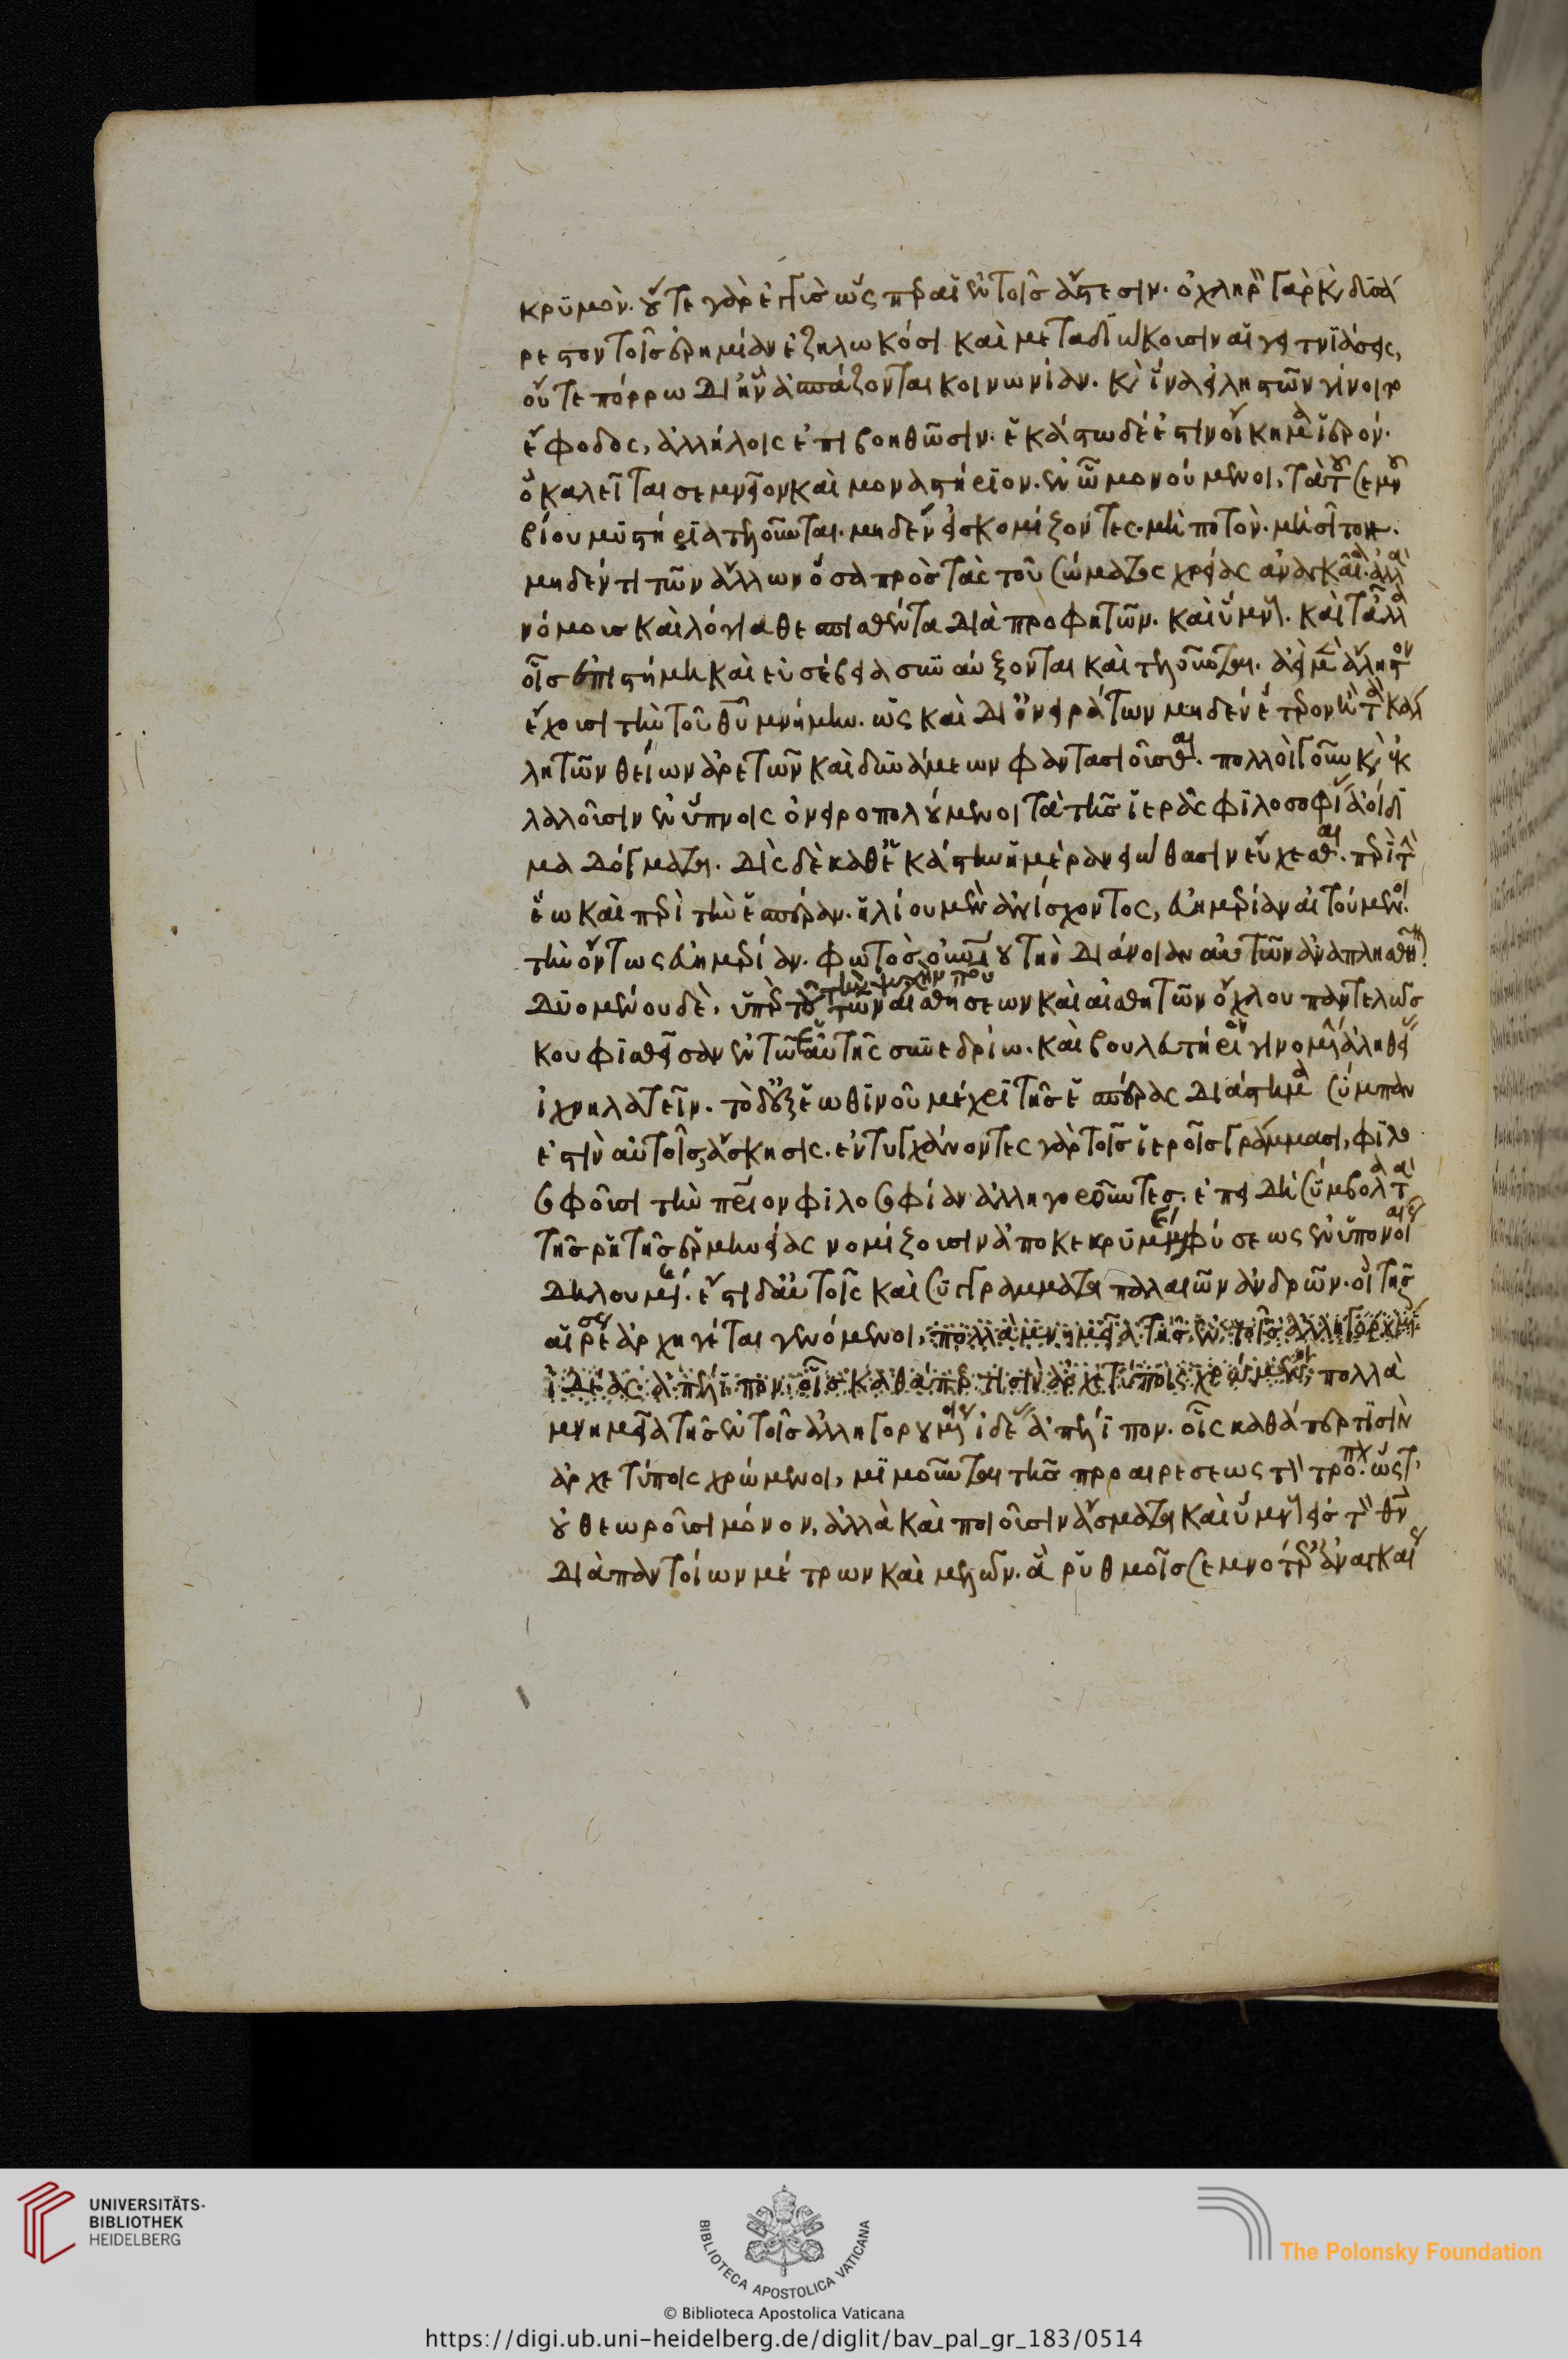 κρϋμόν. οὔτε γὰρ ἐγγὺσ ὥς περ αἱ ἐν τοῖσ ἄστεσιν. ὀχληρὸν γὰρ κ(αὶ) δϋσά
ρεστον τοῖσ ἐρημίαν ἐζηλωκόσι καὶ μεταδϊώκουσιν αἱ γειτνϊάσεις,
οὔτε πόρρω δι' ἣν ἀσπάζονται κοινωνίαν. κ(αὶ) ἵνα εἰ ληστῶν γένοιτο
ἔφοδος, ἀλλήλοις ἐπιβοηθῶσιν. ἑκάστω δέ ἐστιν οἴκημα ἱερόν.
ὃ καλεῖται σεμνεῖον καὶ μοναστήριον. ἐν ᾧ μονούμενοι, τὰ τοῦ σεμνοῦ
βίου μϋστήρϊα τελοῦνται. μηδὲν εἰσκομίζοντες. μὴ ποτὸν. μὴ σῖτον.
μηδέν τι τῶν ἄλλων ὅσα πρὸσ τὰς τοῦ σώματος χρείας ἀναγκαῖα. ἀλλὰ
νόμουσ καὶ λόγια θεσπισθέντα διὰ προφητῶν. καὶ ὕμνους. καὶ τἄλλα
οἷσ ἐπιστήμη καὶ εὐσέβεια σϋναύξονται καὶ τελοῦνται. ἀεὶ μὲν ἄληστον
ἔχουσι τὴν τοῦ θῦ μνήμην. ὡς καὶ δι' ὀνειράτων μηδὲν ἕτερον ἢ τὰ κάλ
λη τῶν θείων ἀρετῶν καὶ δϋνάμεων φαντασιοῦσθαι. πολλοὶ γοῦν κ(αὶ) ἐκ
λαλοῦσιν ἐν ὕπνοις ὀνειροπολούμενοι τὰ τῆσ ἱερᾶς φϊλοσοφίας ἀοίδϊ
μα δόγματα. δὶς δὲ καθ' ἑκάστην ἡμέραν εἰώθασιν εὔχεσθαι. περὶ τὴν
ἕω καὶ περὶ τὴν ἑσπέραν. ἡλίου μὲν ἀνίσχοντος, εὐημερίαν αἰτούμενοι.
τὴν ὄντως εὐημερίαν. φωτὸσ οὐρανίου τὴν διάνοιαν αὐτῶν ἀναπλησθῆναι.
δϋομένου δὲ, ὑπὲρ τοῦ τὴν ψυχὴν τοῦ τῶν αἰσθήσεων καὶ αἰσθητῶν ὄχλου παντελῶσ
κουφϊσθεῖσαν ἐν τῶ ἑαυτῆς σϋνεδρίω. καὶ βουλευτηρίω γινομένην ἀλήθειαν
ἰχνηλατεῖν. τὸ δ' ἐξ ἑωθϊνοῦ μέχρϊ τῆσ ἑσπέρας διάστημα σύμπαν
ἐστὶν αὐτοῖς ἄσκησις. ἐντυγχάνοντες γὰρ τοῖσ ἱεροῖσ γράμμασι, φϊλο
σοφοῦσι τὴν πάτριον φϊλοσοφίαν ἀλληγοροῦντεσ. ἐπειδὴ σύμβολα τὰ
τῆσ ῥητῆσ ἑρμηνείας νομίζουσιν ἀποκεκρϋμένης φύσεως ἐν ὑπονοίαις
δηλουμένης. ἔστι δ' αὐτοῖς καὶ σϋγγράμματα παλαιῶν ἀνδρῶν. οἳ τῆσ
αἱρέσεως ἀρχηγέται γενόμενοι, πολλὰ μνημεῖα τῆσ ἐν τοῖσ ἀλληγορουμένοις
ἰδέας ἀπέλιπον. οἷσ καθάπερ τισὶν ἀρχετύποις χρώμενοι, πολλὰ
μνημεῖα τῆσ ἐν τοῖσ ἀλληγορουμένοις ἰδέας ἀπέλιπον. οἷς καθάπερ τϊσὶν
ἀρχετύποις χρώμενοι, μϊμοῦνται τῆσ προαιρέσεως τὸν τρόπον. ὥστ'
οὐ θεωροῦσι μόνον, ἀλλὰ καὶ ποιοῦσιν ἄσματα καὶ ὕμνους εἰσ τὸν θν
διὰ παντοίων μέτρων καὶ μελῶν. ἃ ῥϋθμοῖσ σεμνοτέροις ἀναγκαίως
UNIVERSITÄTS-
BIBLIOTHEK
HEIDELBERG
BIBLIOTECA APOSTOLICA VATICANA
The Polonsky Foundation
© Biblioteca Apostolica Vaticana
https://digi.ub.uni-heidelberg.de/diglit/bav_pal_gr_183/0514